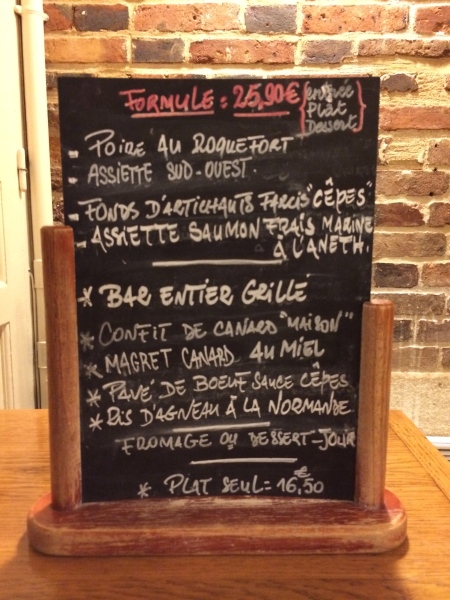 FORMULE = 25,90€ {entrée
Plat
Dessert}
- POIRE AU ROQUEFORT
- ASSIETTE SUD-OUEST.
- FONDS D'ARTICHAUTS FARCIS "CÊPES"
- ASSIETTE SAUMON FRAIS MARINE
À L'ANETH.
* BAR ENTIER GRILLÉ
* CONFIT DE CANARD "MAISON"
* MAGRET CANARD AU MIEL
* PAVÉ DE BOEUF SAUCE CÊPES
* RIS D'AGNEAU À LA NORMANDE
FROMAGE OU DESSERT-JOUR
* PLAT SEUL = 16,50€